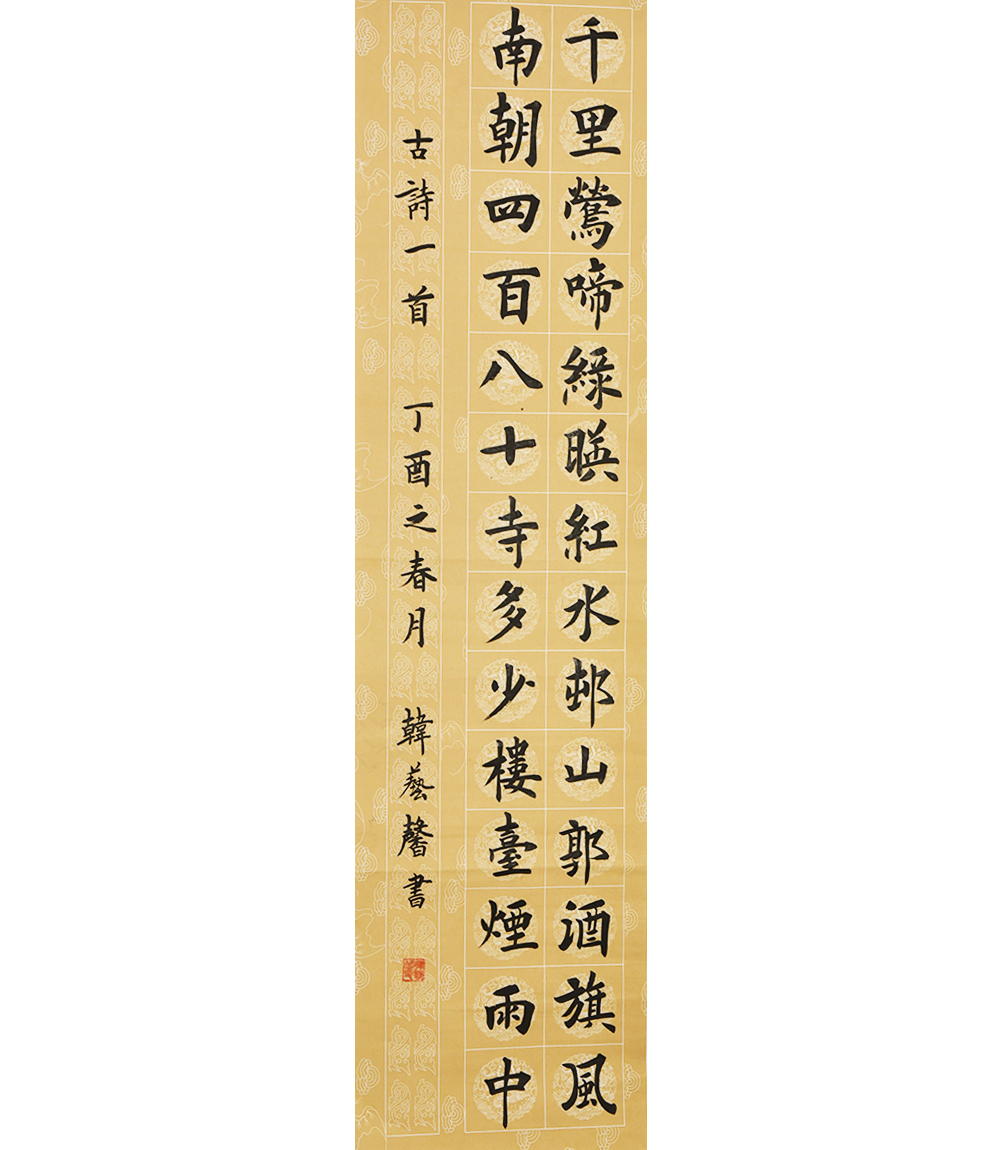 千里鶯啼綠暎紅水邨山郭酒旗風
南朝四百八十寺多少樓臺煙雨中
古詩一首 丁酉之春月 韓藝馨書